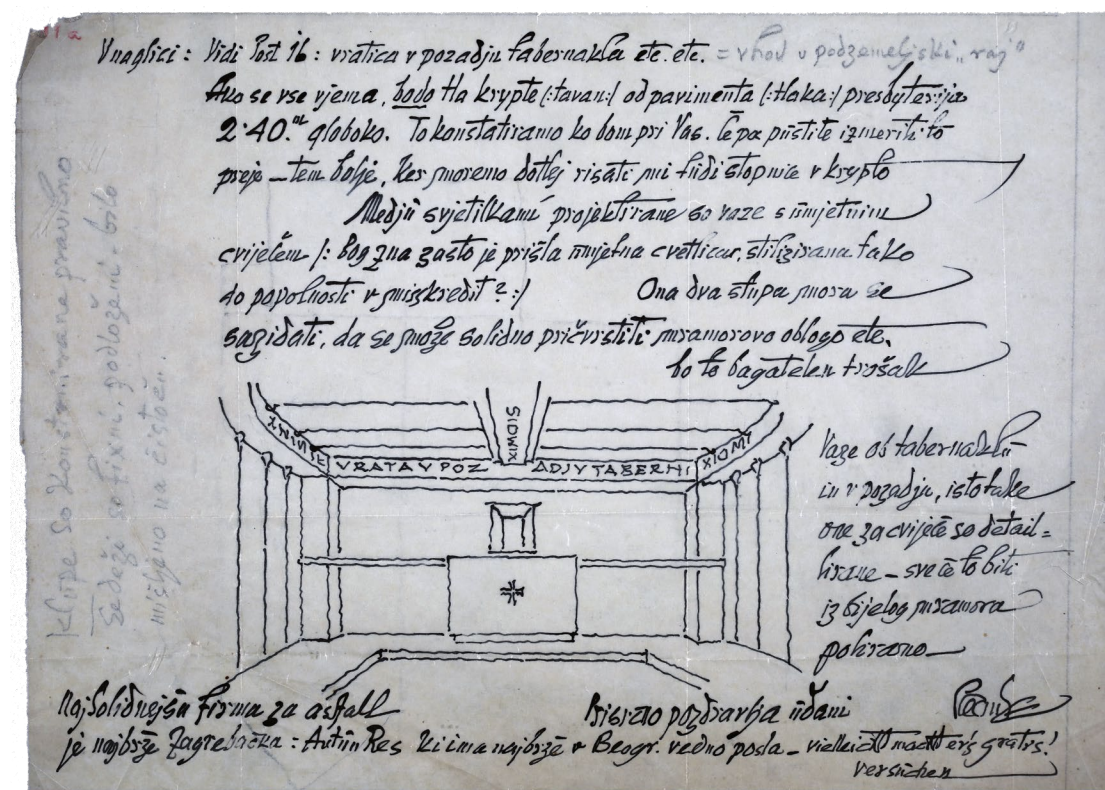 11 a
V naglici : Vidi Post 16 : vratica v pozadju tabernakla etc. etc. = vhod v podzemeljski „raj"
Ako se vse vjema, bodo tla krypte (:tavan:) od pavimenta (:tlaka:) presbyterija
2·40.m globoko. To konstatiramo ko bom pri Vas. Če pa pustite izmeriti to
prejo – tem bolje, ker moremo dotlej risati mi tudi stopnice v krypto
Medju svjetilkami projektirane so vaze s umjetnim
cvijećem /: bog zna zašto je prišla umjetna cvetlica, stilizirana tako
do popolnosti v miskredit ? :/ Ona dva stupa mora se
sazidati, da se može solidno pričvrstiti mramorovo oblogo etc.
bo to bagatelen trošak
VRATA V POZ ADJU TABERN
Vaze oš tabernaklu
in v pozadju, istotake
one za cvijeće so detail=
lirane – sve će to biti
iz bijelog mramora
polirano –
Klupe so konstruirane pravilno
Sedeži so fixni, podloženi. bilo
mišljeno na čistoću.
Najsolidnejša firma za asfalt
je najbrže Zagrebačka : Antun Res ki ima najbrže v Beogr. vedno posla – vielleicht macht er's gratis!
versuchen
Iskreno pozdravlja udani